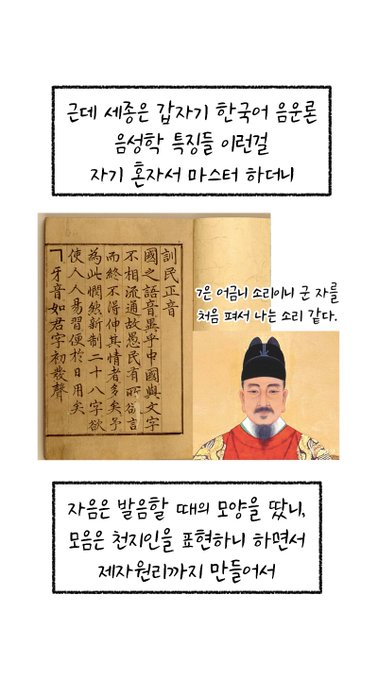 근데 세종은 갑자기 한국어 음운론
음성학 특징들 이런걸
자기 혼자서 마스터 하더니
訓民正音
國之語音異乎中國與文字
不相流通故愚民有所欲言
而終不得伸其情者多矣予
為此憫然新制二十八字欲
使人人易習便於日用矣
ㄱ牙音如君字初發聲
ㄱ은 어금니 소리이니 군 자를
처음 펴서 나는 소리 같다.
자음은 발음할 때의 모양을 땄니,
모음은 천지인을 표현하니 하면서
제자원리까지 만들어서